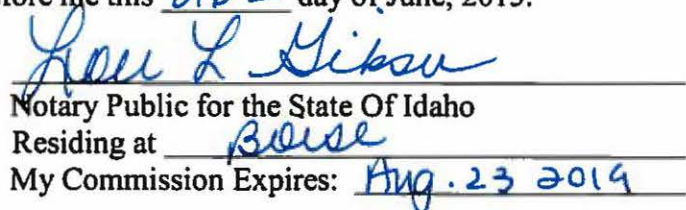 ore me this day of June, 2015.
L Gibson
Notary Public for the State Of Idaho
Residing at Boise
My Commission Expires: Aug. 23 2019